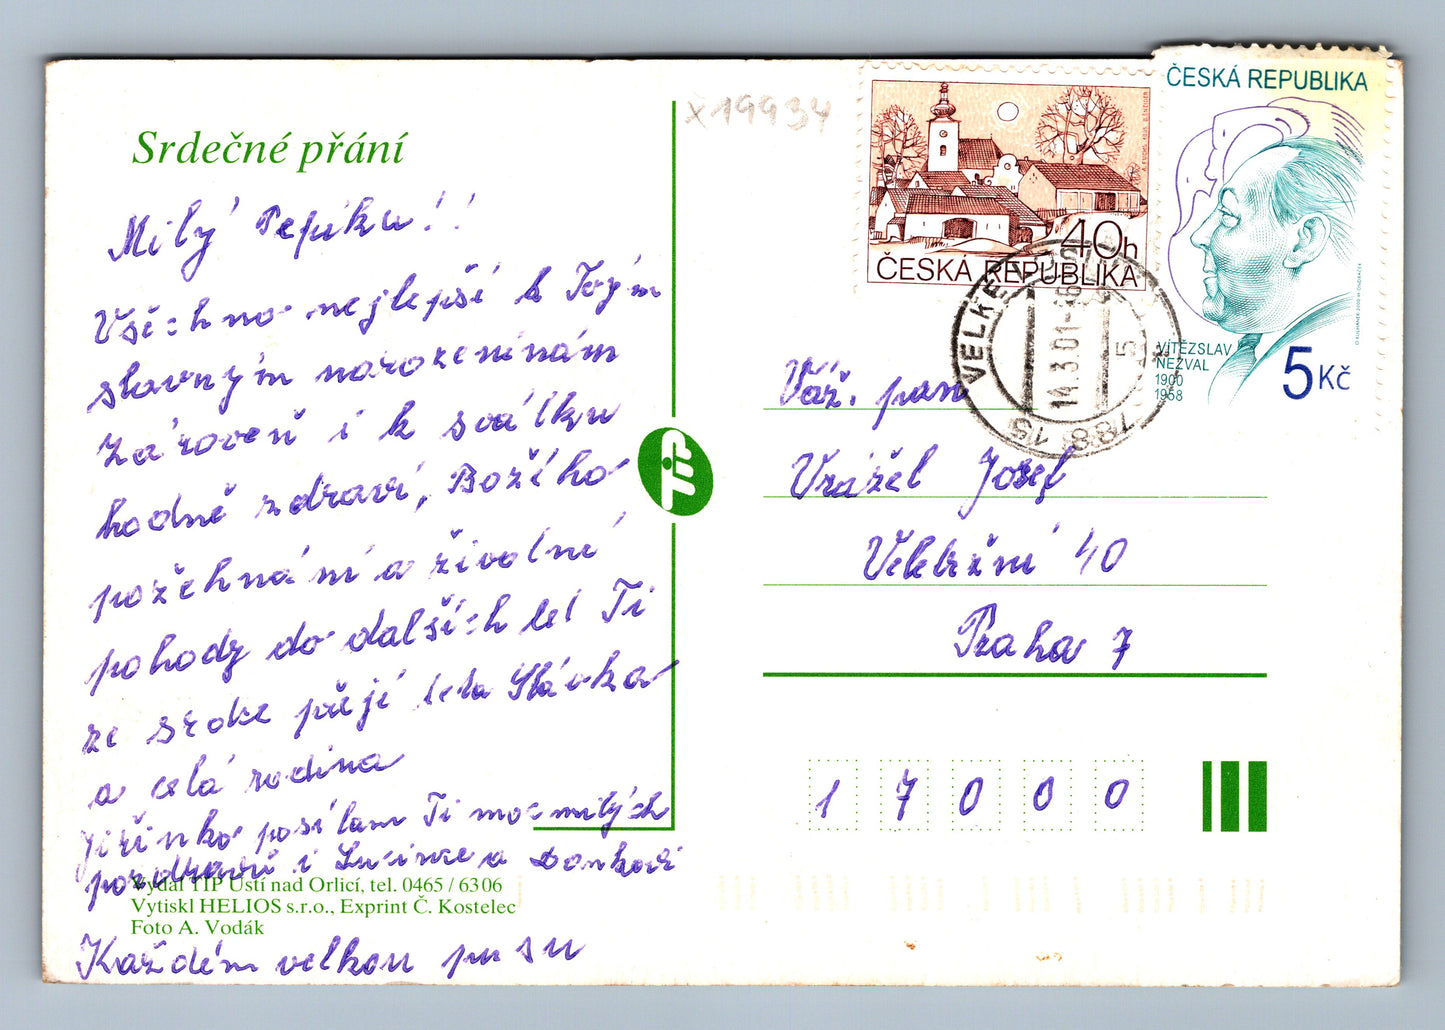 Srdečné přání
Milý Pepíku!!
Všechno nejlepší k Tvým
slavným narozeninám
zároveň i k svátku
hodně zdraví, Božího
požehnání a životní
pohody do dalších let Ti
ze srdce přejí teta Slávka
a celá rodina
Jiřinko posílám Ti moc milých
pozdravů i Lucince a
Vydal TIP Ústí nad Orlicí, tel. 0465 / 6306
Vytiskl HELIOS s.r.o., Exprint Č. Kostelec
Foto A. Vodák
Každém velkou pusu
TIP
x19934
40h
ČESKÁ REPUBLIKA
ČESKÁ REPUBLIKA
VÍTĚZSLAV
NEZVAL
1900
1958
5Kč
VELKÉ
14.3.01-16
Váž. pan
Vrážel Josef
Veletržní 40
Praha 7
1 7 0 0 0